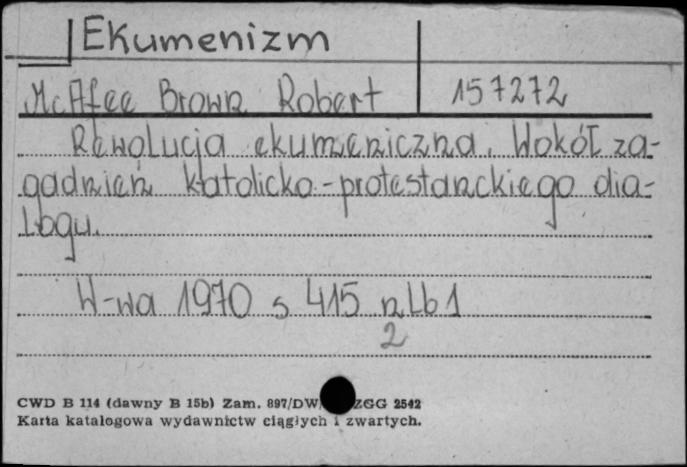 Ekumenizm
McAfee Brown Robert 157272
Rewolucja ekumeniczna. Wokół za-
gadnień katolicko-protestanckiego dia-
logu.
W-wa 1970 s 415 nlb 1
2
CWD B 114 (dawny B 15b) Zam. 897/DW/ ZGG 2542
Karta katalogowa wydawnictw ciągłych i zwartych.